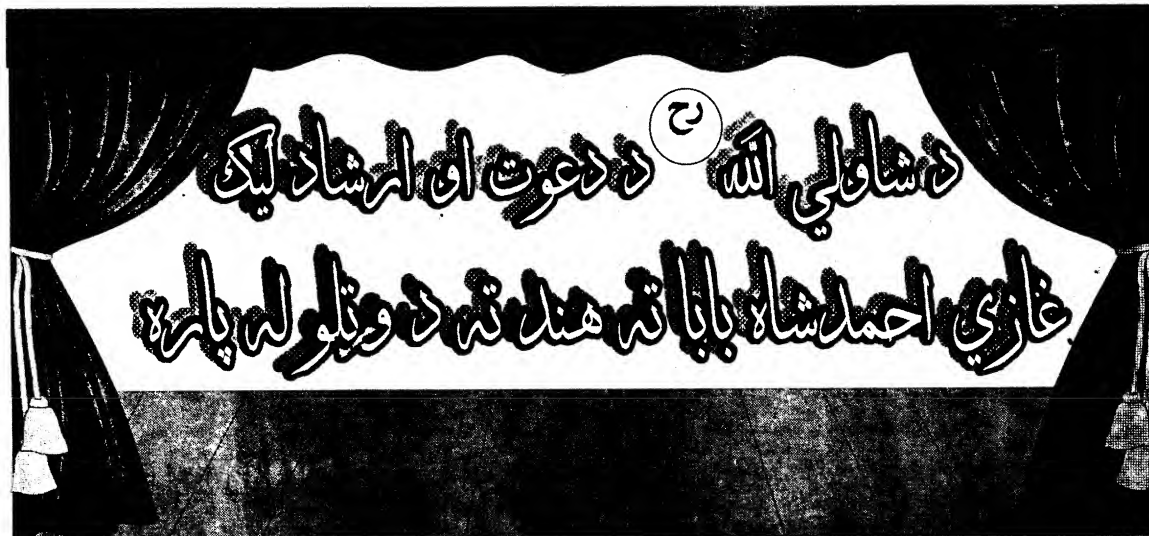 د شاولي الله رح د دعوت او ارشاد ليک
غازي احمدشاه بابا ته هند ته د وتلو له پاره